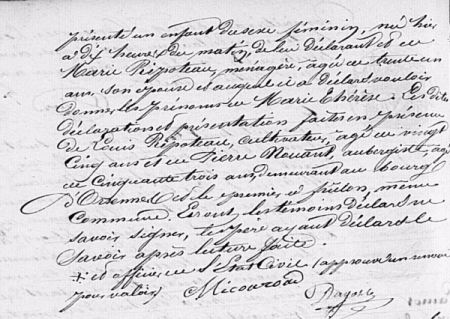 présenté un enfant du sexe féminin, né hier
à dix heures du matin, de lui déclarant et de
Marie Répoteau, ménagère, agée de trente un
ans, son épouse et auquel il a déclaré vouloir
donner les prénoms de Marie Thérèse: Ces dites
déclaration et présentation faites en présence
de Louis Répoteau, cultivateur, agé de vingt
Cinq ans et de Pierre Nouant, aubergiste, agé
de Cinquante trois ans, demeurant au bourg
Et le premier à même
Commune. Et ont, les témoins déclaré ne
savoir signer, le père ayant déclaré le
Savoir après lecture faite.
et officier de l'Etat Civil (approuvé un renvoi
pour valoir)